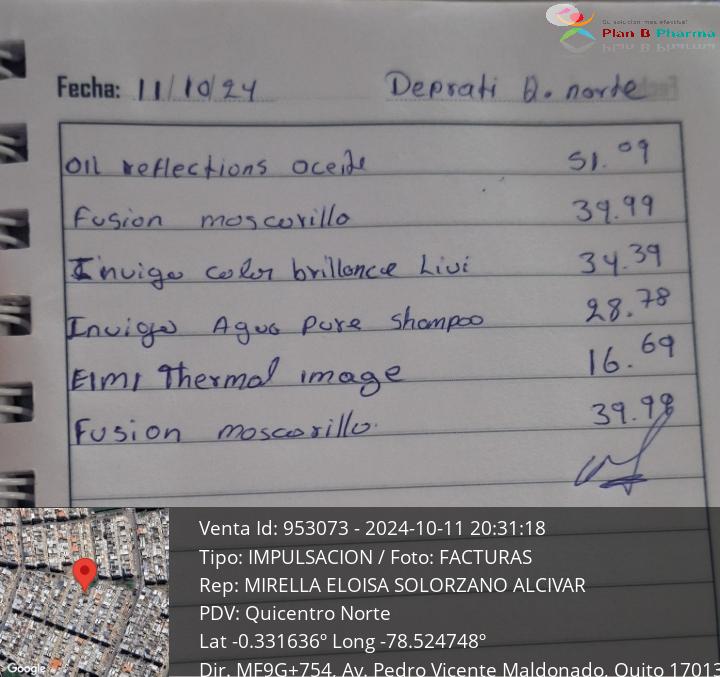 Su solución más efectiva!
Plan B Pharma
Fecha: 11/10/24 Deprati Q. norte
Oil reflections aceite 51.09
Fusion mascarilla 39.99
Invigo color brillance Livi 34.39
Invigo Agua Pure shampoo 28.78
EIMI Thermal image 16.69
Fusion mascarilla. 39.98
Venta Id: 953073 - 2024-10-11 20:31:18
Tipo: IMPULSACION / Foto: FACTURAS
Rep: MIRELLA ELOISA SOLORZANO ALCIVAR
PDV: Quicentro Norte
Lat -0.331636° Long -78.524748°
Dir. MF9G+754, Av. Pedro Vicente Maldonado, Quito 17013
Google